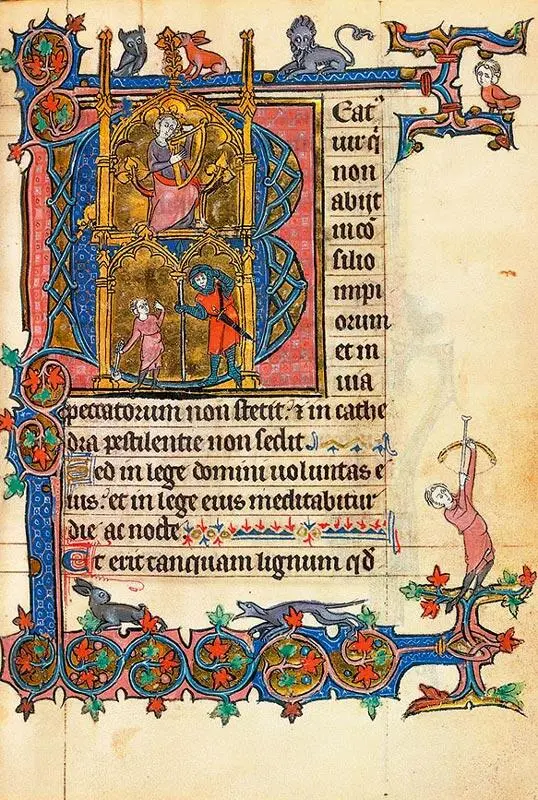 Beatꝰ
uir q̇
non
abijt
in cō
silio
impi
orum
et in
uia
peccatorum non stetit: ⁊ in cathe
dra pestilentie non sedit.
Sed in lege domini uoluntas e
ius: et in lege eius meditabitur
die ac nocte.
Et erit tanquam lignum qd̄